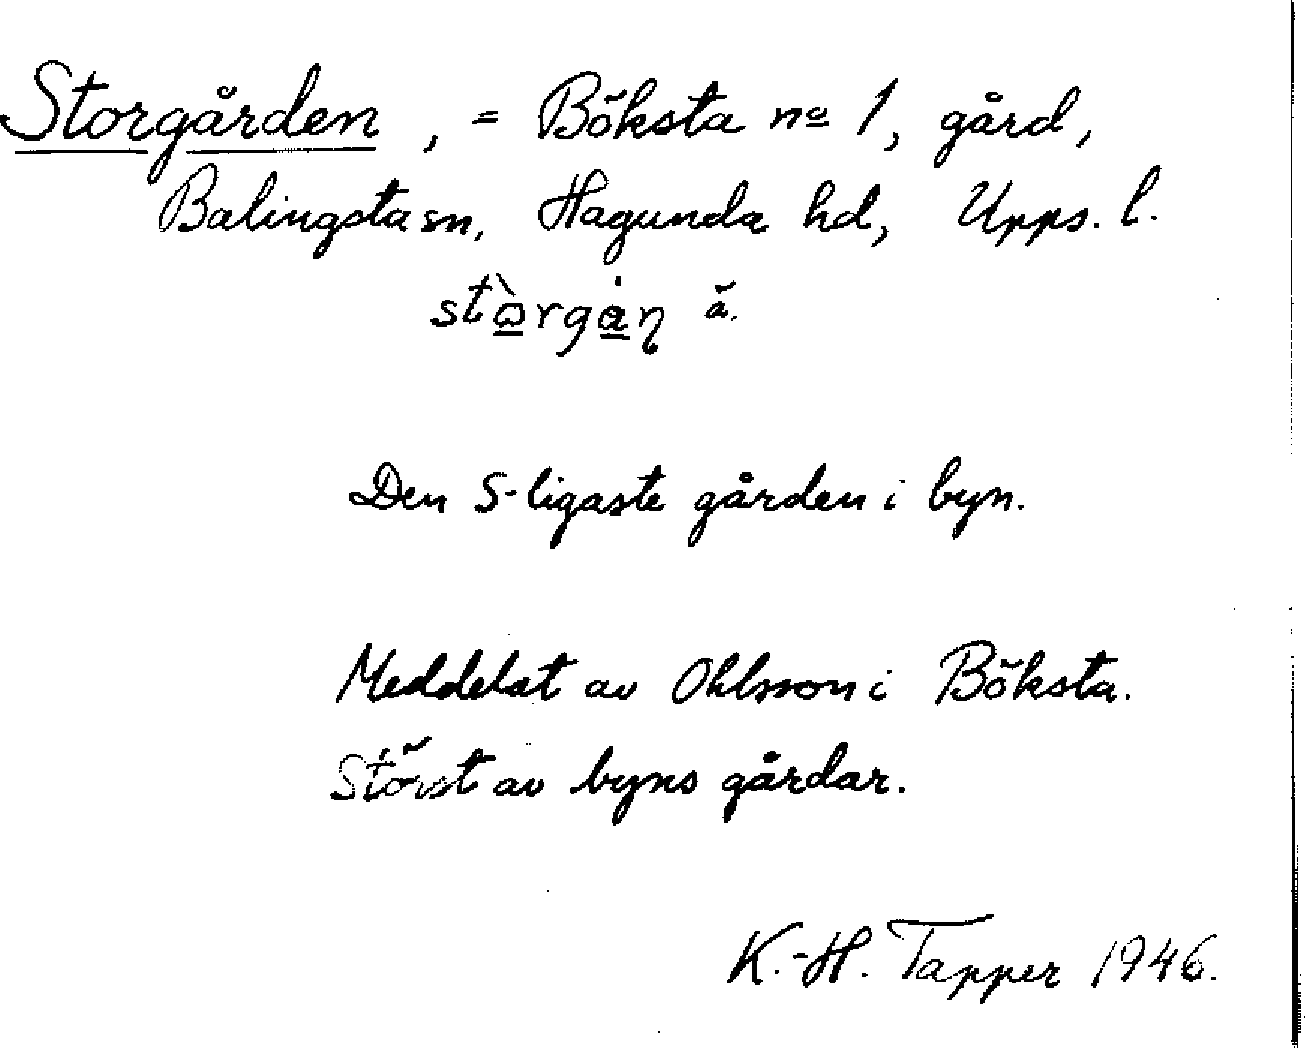 Storgården, = Böksta nº 1, gård,
Balingsta sn, Hagunda hd, Upps. l.
stòrgȧn ä.
Den S-ligaste gården i byn.
Meddelat av Ohlsson i Böksta.
Störst av byns gårdar.
K.-H. Tapper 1946.